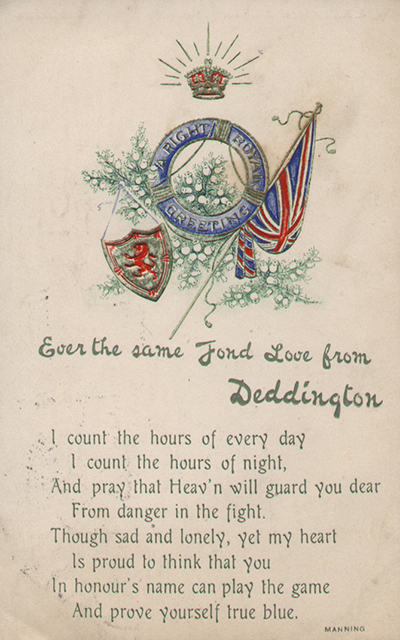 A RIGHT ROYAL
GREETING
Ever the same Fond Love from
Deddington
I count the hours of every day
I count the hours of night,
And pray that Heav'n will guard you dear
From danger in the fight.
Though sad and lonely, yet my heart
Is proud to think that you
In honour's name can play the game
And prove yourself true blue.
MANNING